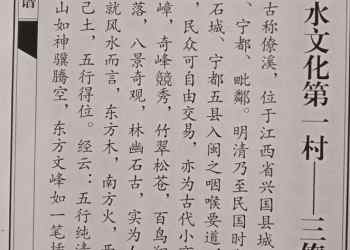 水文化第一村——三
古称僚溪，位于江西省兴国县城
、宁都、毗鄰。明清乃至民国时
石城、宁都五县入闽之咽喉要道
，民众可自由交易，亦为古代小
嶂，奇峰競秀，竹翠松苍，百鸟
落，八景奇观，林幽石古，实为
就风水而言，东方木，南方火，
己土，五行得位。经云：五行纯清
山如神骥腾空，东方文峰如一笔
谱